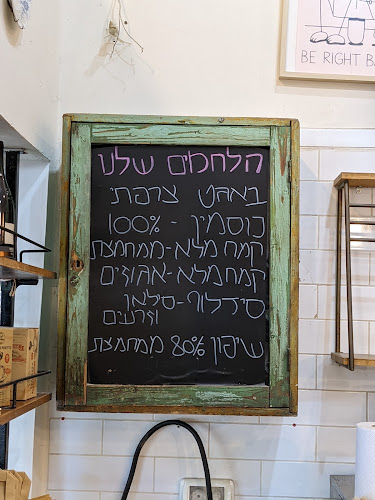 BE RIGHT BA
הלחמים שלנו
באגט צרפתי
כוסמין - 100%
קמח מלא - ממחמצת
קמח מלא - אגוזים
סידלוף - סילאן
וזרעים
שיפון 80% ממחמצת